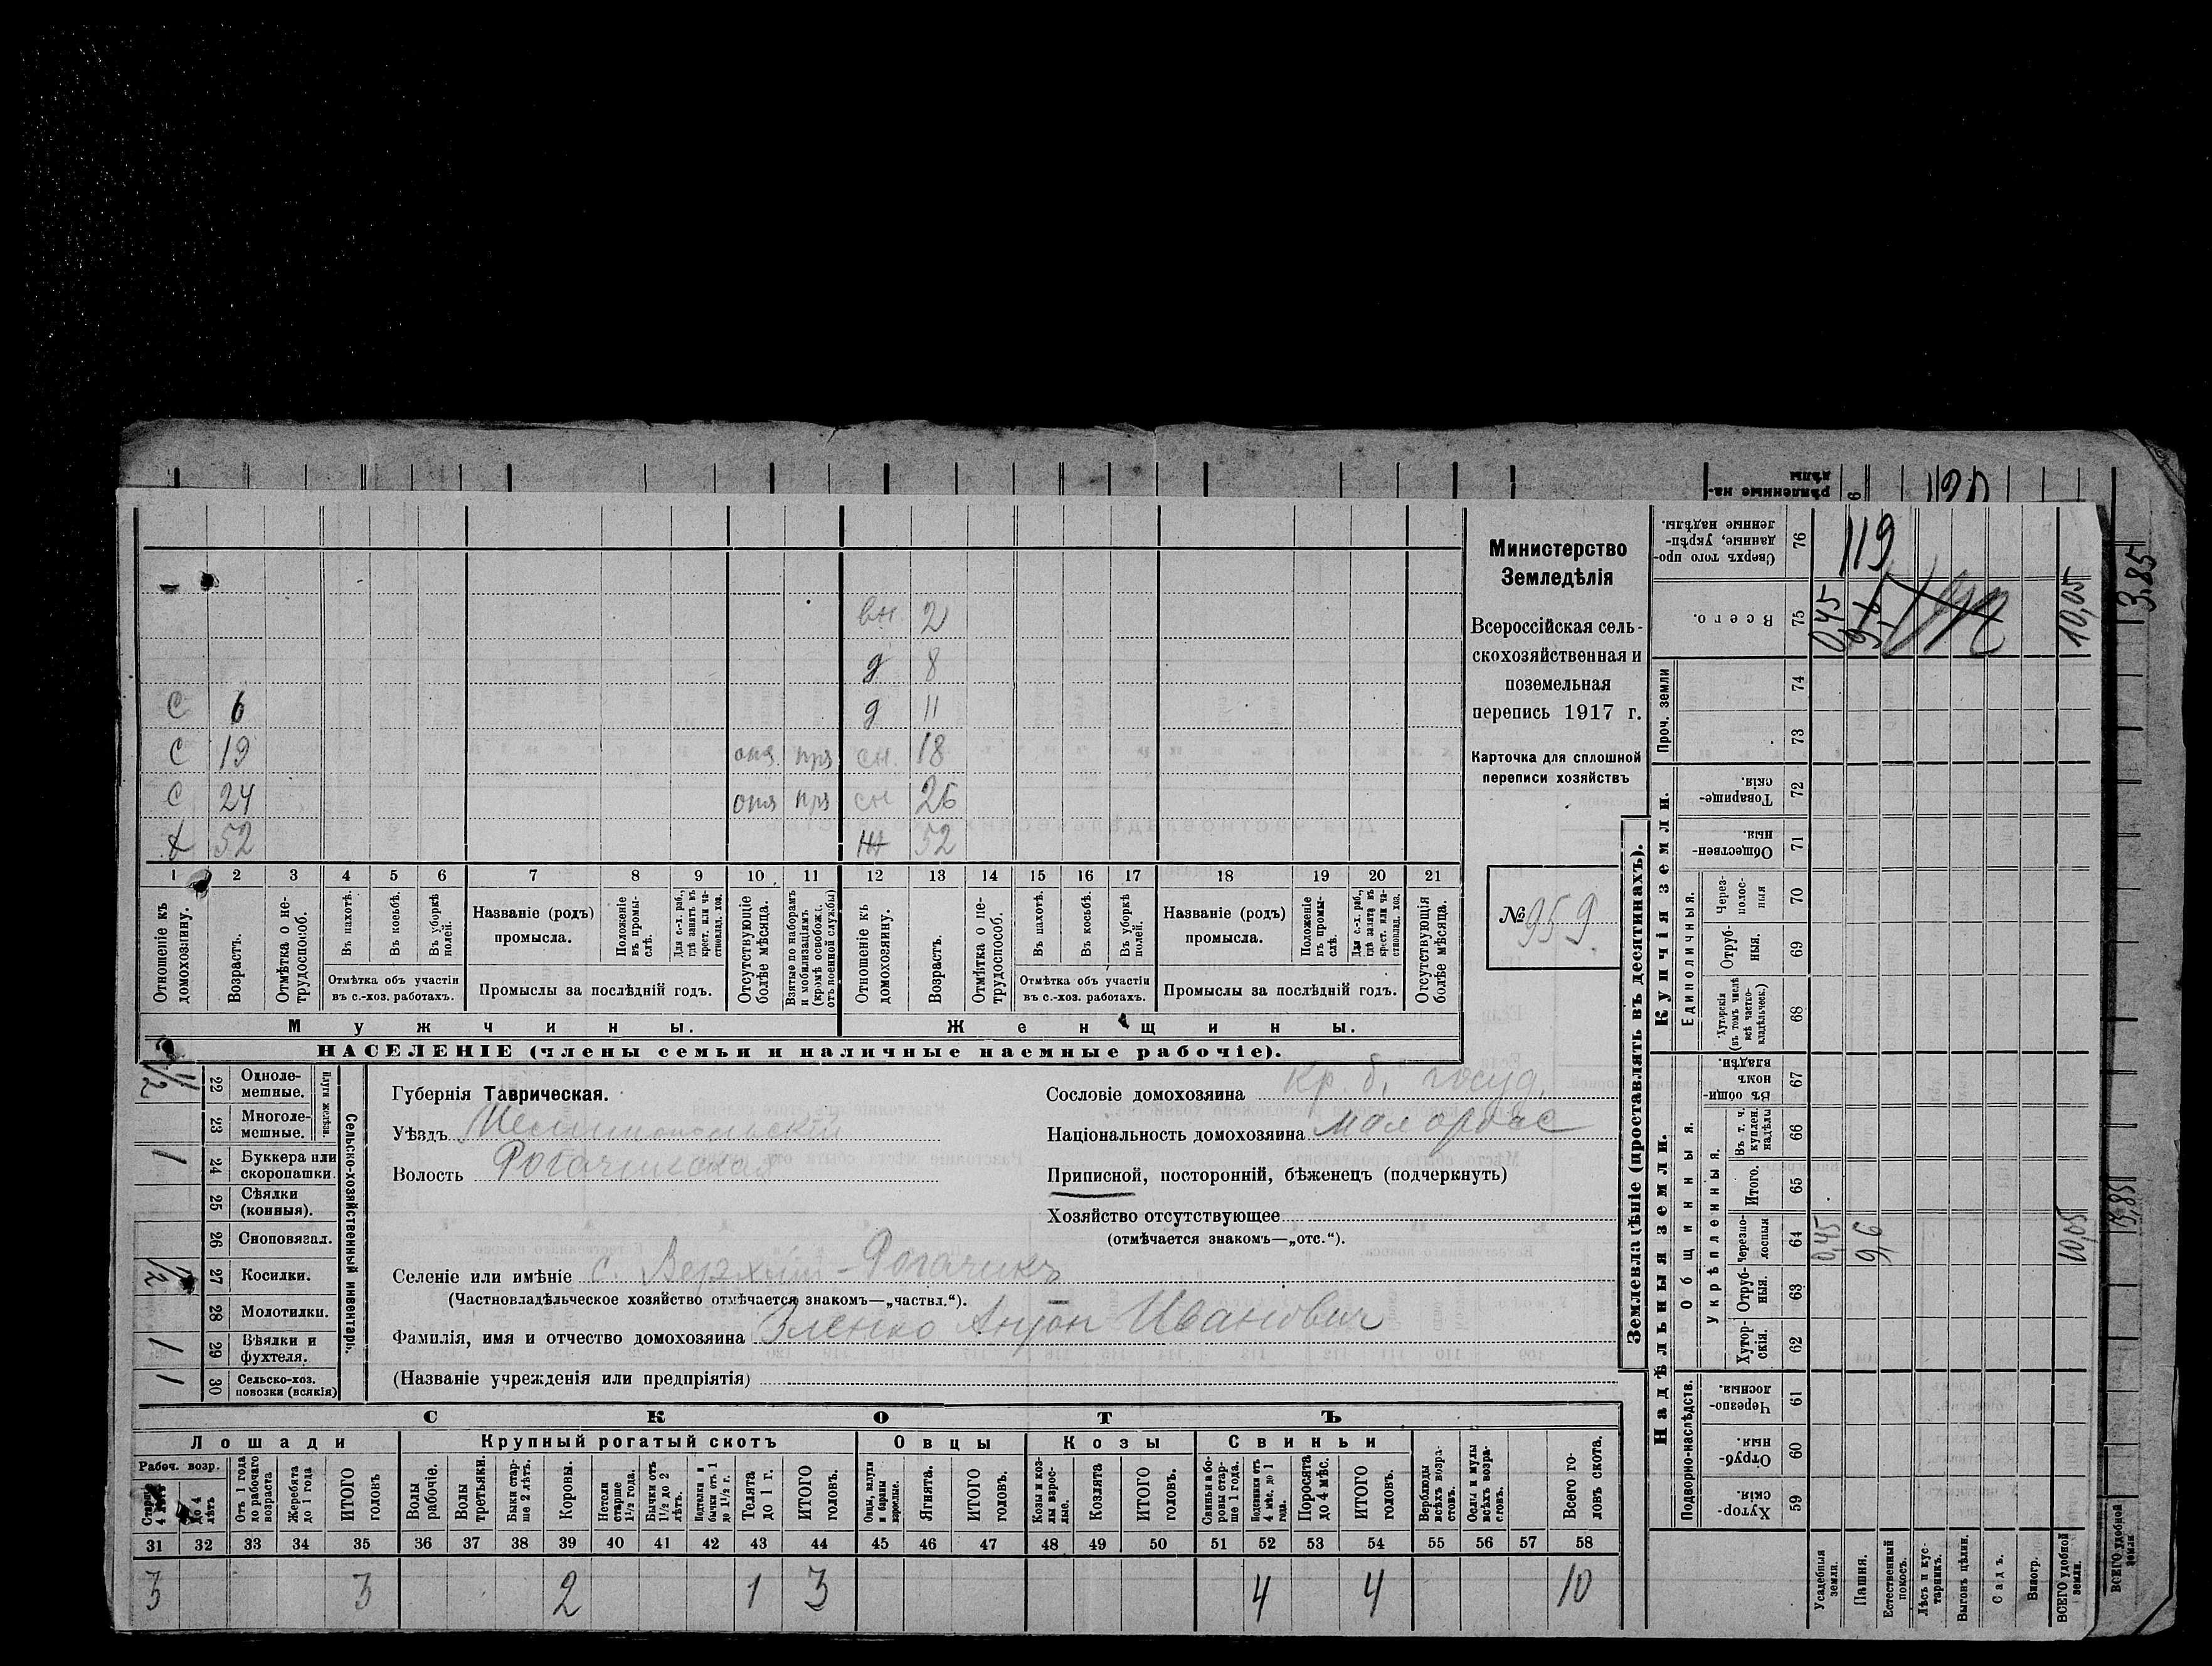 Министерство
Земледѣлія
Всероссійская сель-
скохозяйственная и
поземельная
перепись 1917 г.
Карточка для сплошной
переписи хозяйствъ
№ 959.
вн. 2
д 8
С 6 д 11
С 19 сн. 18
С 24 сн 26
52 ж 52
1 2 3 4 5 6 7 8 9 10 11 12 13 14 15 16 17 18 19 20 21
Отношеніе къ домохозяину.
Возрастъ.
Отмѣтка о не-трудоспособ.
Въ пахотѣ.
Въ косьбѣ.
Въ уборкѣ полей.
Отмѣтка объ участіи
въ с.-хоз. работахъ.
Названіе (родъ)
промысла.
Положеніе въ промы-слѣ.
Для с.-х. раб., гдѣ занятъ въ крест. или ча-стновлад. хоз.
Промыслы за послѣдній годъ.
Отсутствующіе болѣе мѣсяца.
Взятые по наборамъ и мобилизаціямъ (кромѣ освобожд. отъ военной службы)
Отношеніе къ домохозяину.
Возрастъ.
Отмѣтка о не-трудоспособ.
Въ пахотѣ.
Въ косьбѣ.
Въ уборкѣ полей.
Отмѣтка объ участіи
въ с.-хоз. работахъ.
Названіе (родъ)
промысла.
Положеніе въ промы-слѣ.
Для с.-х. раб., гдѣ занятъ въ крест. или ча-стновлад. хоз.
Промыслы за послѣдній годъ.
Отсутствующія болѣе мѣсяца.
Мужчины. Женщины.
НАСЕЛЕНІЕ (члены семьи и наличные наемные рабочіе).
Сельско-хозяйственный инвентарь.
Плуги желѣзн.
1/2 22 Однолемешные.
23 Многолемешные.
1 24 Буккера или скоропашки.
25 Сѣялки (конныя).
26 Сноповязал.
1/2 27 Косилки.
28 Молотилки.
1 29 Вѣялки и фухтеля.
1 30 Сельско-хоз. повозки (всякія)
Губернія Таврическая.
Уѣздъ Мелитопольскій
Волость Рогачикская
Сословіе домохозяина кр. б. госуд.
Національность домохозяина малоросс
Приписной, посторонній, бѣженецъ (подчеркнуть)
Хозяйство отсутствующее
(отмѣчается знакомъ—„отс.“).
Селеніе или имѣніе с. Верхній-Рогачикъ
(Частновладѣльческое хозяйство отмѣчается знакомъ—„частвл.“).
Фамилія, имя и отчество домохозяина Зленко Антон Иванович
(Названіе учрежденія или предпріятія)
СКОТЪ
Лошади Крупный рогатый скотъ Овцы Козы Свиньи
Рабоч. возр.
До 4 лѣтъ
Отъ 1 года до рабочаго возраста
Жеребята до 1 года
ИТОГО головъ
Волы рабочіе.
Волы третьяки.
Быки стар-ше 2 лѣтъ.
Коровы.
Нетели старше 1 1/2 года.
Бычки отъ 1 1/2 до 2 лѣтъ.
Телята до 1 г.
ИТОГО головъ.
Ягнята.
ИТОГО головъ.
Козы и коз-лы взрос-лые.
Козлята
ИТОГО головъ.
Свиньи и бо-ровы стар-ше 1 года.
Поросята до 4 мѣс.
ИТОГО головъ.
Верблюды всѣхъ возра-стовъ.
Ослы и мулы всѣхъ возра-стовъ.
Всего го-ловъ скота.
31 32 33 34 35 36 37 38 39 40 41 42 43 44 45 46 47 48 49 50 51 52 53 54 55 56 57 58
3 3 2 1 3 4 4 10
Землевладѣніе (проставлять въ десятинахъ).
Надѣльныя земли. Купчія земли. Проч. земли
Подворно-наслѣдств. Общинныя. Единоличныя.
Укрѣпленныя.
59 Хутор-скія
60 Отруб-ныя
61 Черезпо-лосныя
62 Хутор-скія.
63 Отруб-ныя.
64 Черезпо-лосныя
65 Итого.
66 Въ т. ч. куплен. надѣлы
67 Въ общин-номъ владѣн.
68 Хуторскія (въ томъ числѣ всѣ частно-владѣльческ.)
69 Отруб-ныя.
70 Через-полос-ныя
71 Обществен-ныя.
72 Товарище-скія.
73
74
75 Всего.
76 Сверхъ того про-данные, укрѣп-ленные надѣлы.
Усадебная земля.
Пашня.
Естественный покосъ.
Лѣсъ и кус-тарникъ.
Выгонъ цѣлин.
Садъ.
Виногр.
ВСЕГО удобной земли.
0,45 9,6 10,05
0,45 9,6 10,05
119
ВСЕГО удобной земли
13,85
13,85